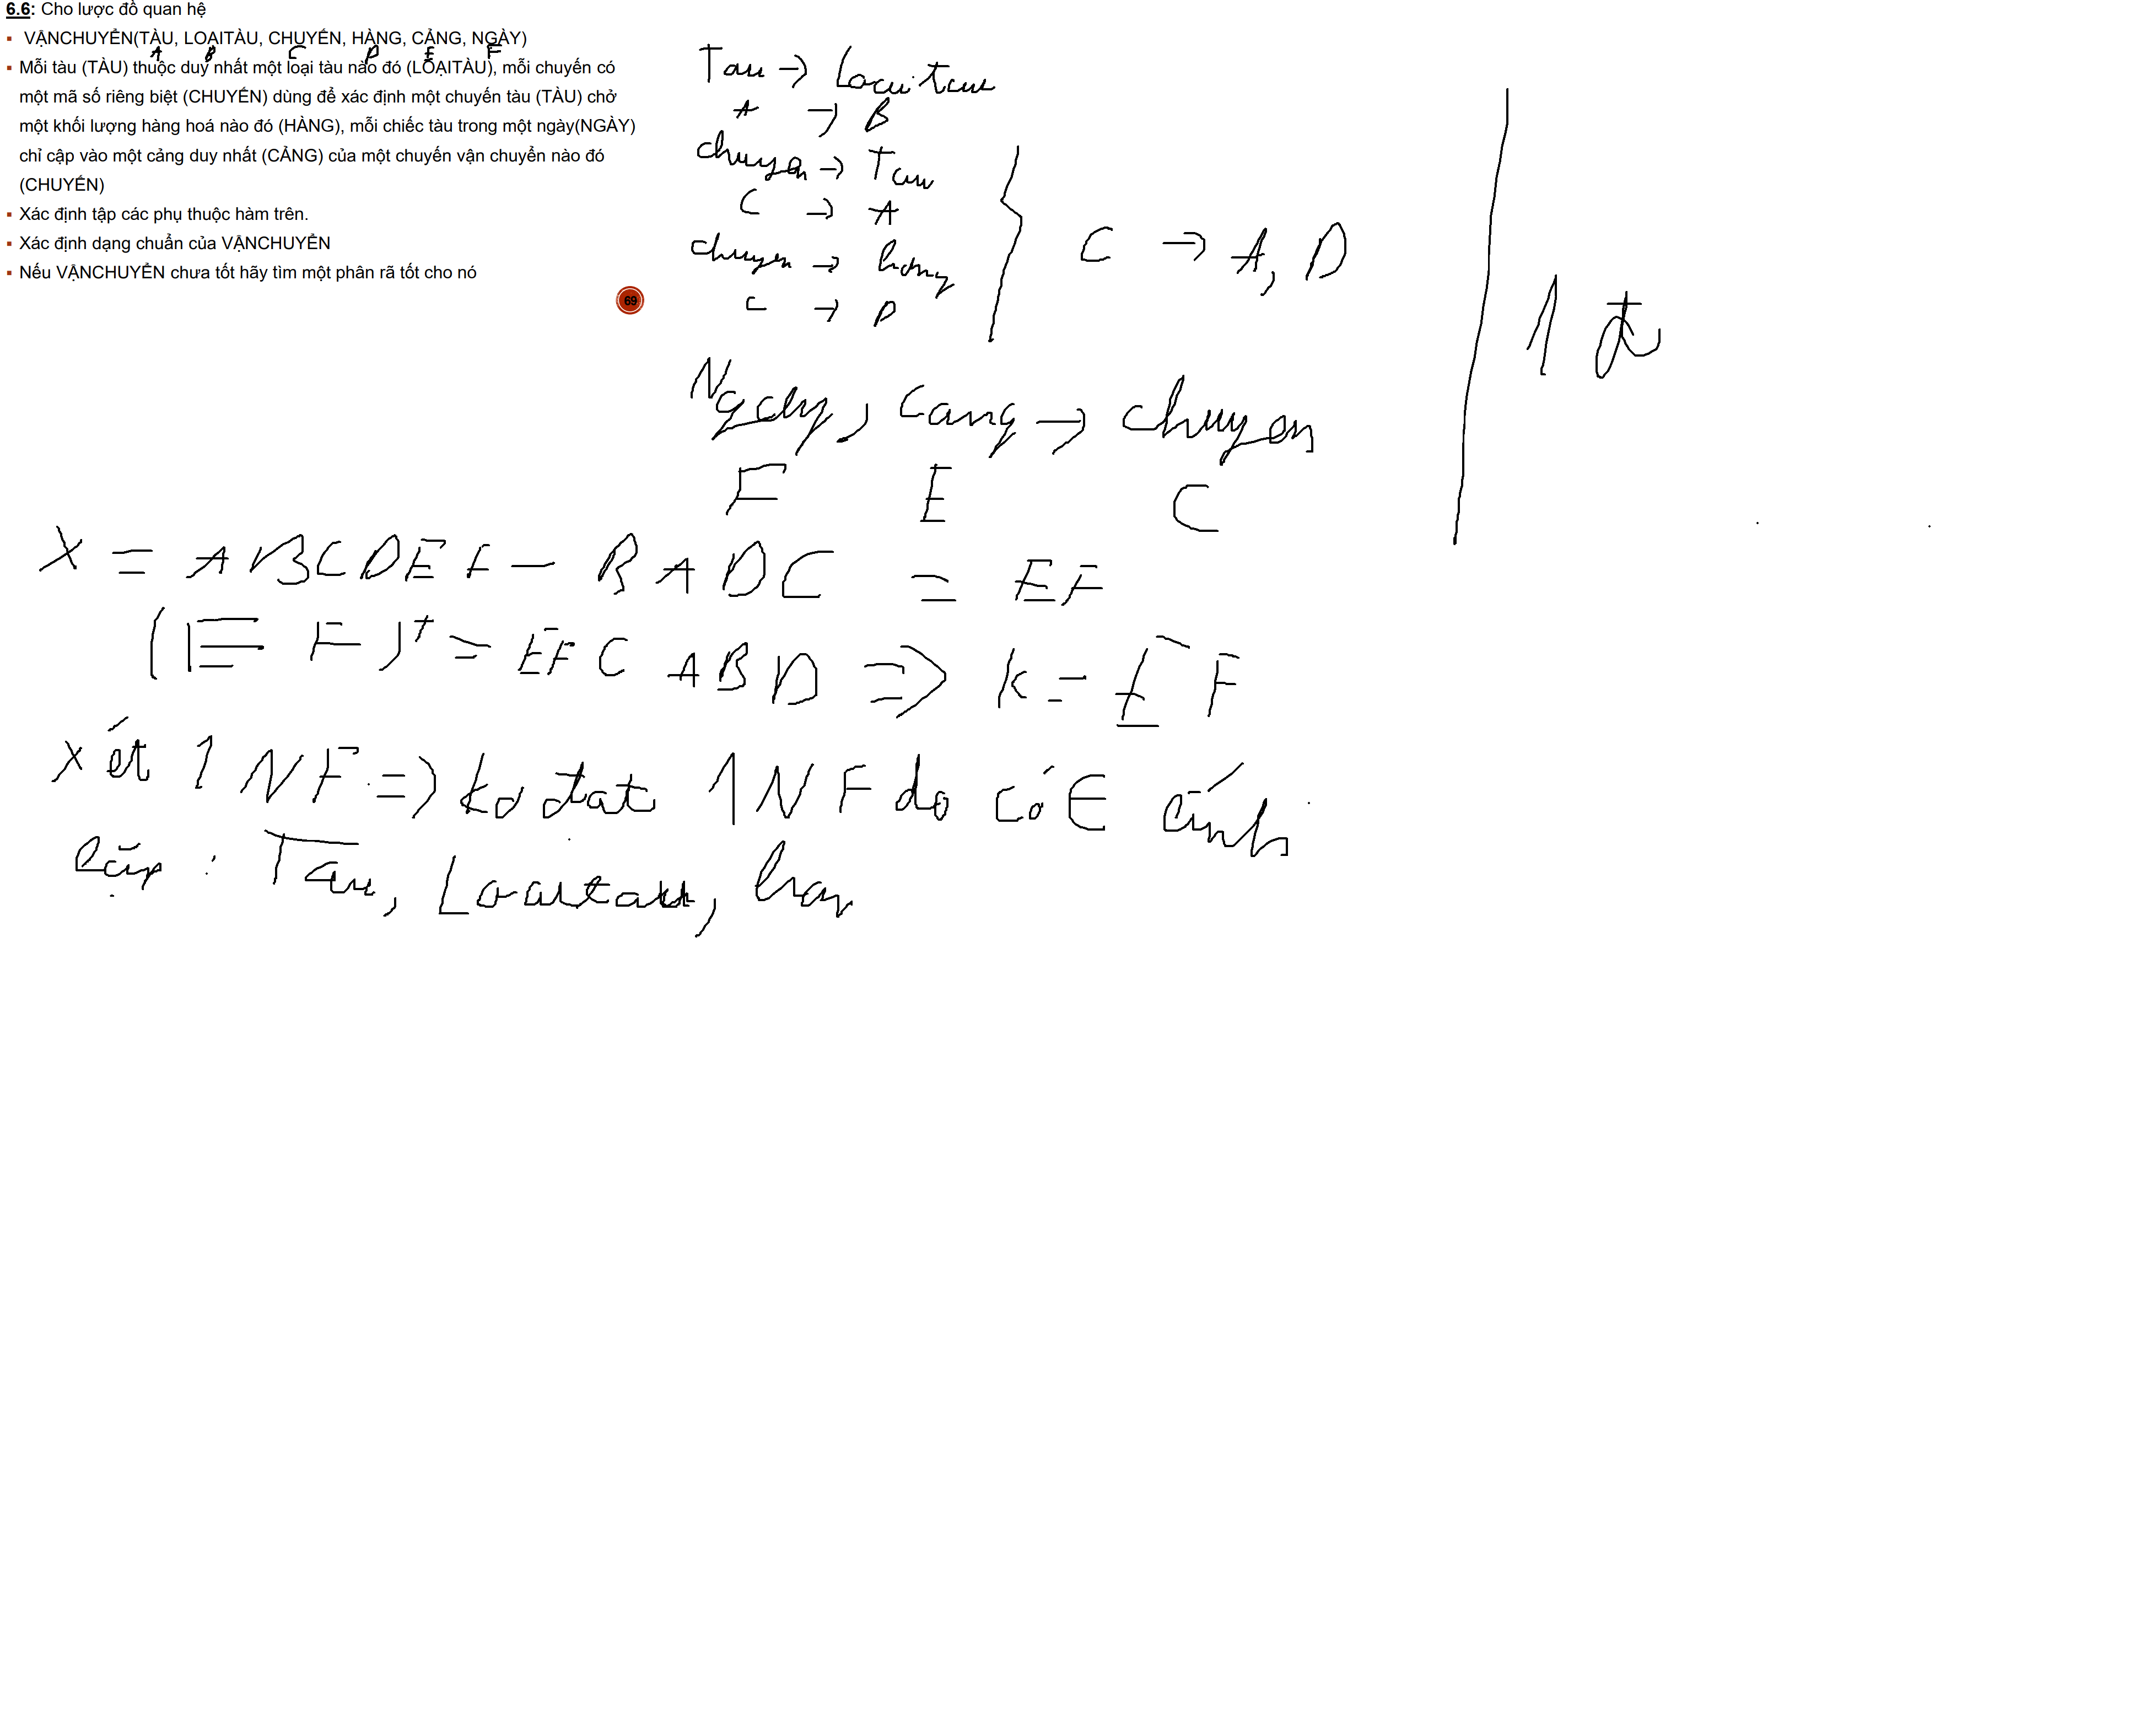 6.6: Cho lược đồ quan hệ
▪ VẬNCHUYỂN(TÀU, LOẠITÀU, CHUYẾN, HÀNG, CẢNG, NGÀY)
A B C D E F
▪ Mỗi tàu (TÀU) thuộc duy nhất một loại tàu nào đó (LOẠITÀU), mỗi chuyến có
một mã số riêng biệt (CHUYẾN) dùng để xác định một chuyến tàu (TÀU) chở
một khối lượng hàng hoá nào đó (HÀNG), mỗi chiếc tàu trong một ngày(NGÀY)
chỉ cập vào một cảng duy nhất (CẢNG) của một chuyến vận chuyển nào đó
(CHUYẾN)
▪ Xác định tập các phụ thuộc hàm trên.
▪ Xác định dạng chuẩn của VẬNCHUYỂN
▪ Nếu VẬNCHUYỂN chưa tốt hãy tìm một phân rã tốt cho nó
69
Tau → Loaitau
A → B
chuyen → Tau
C → A
chuyen → hang
C → D
C → A, D
1 đ
Ngay, cang → chuyen
F E C
X = ABCDEF - BADC = EF
(EF)+ = EFC ABD => K = EF
xét 1NF => ko đat 1NF do có
lặp : Tau, Loaitau, han